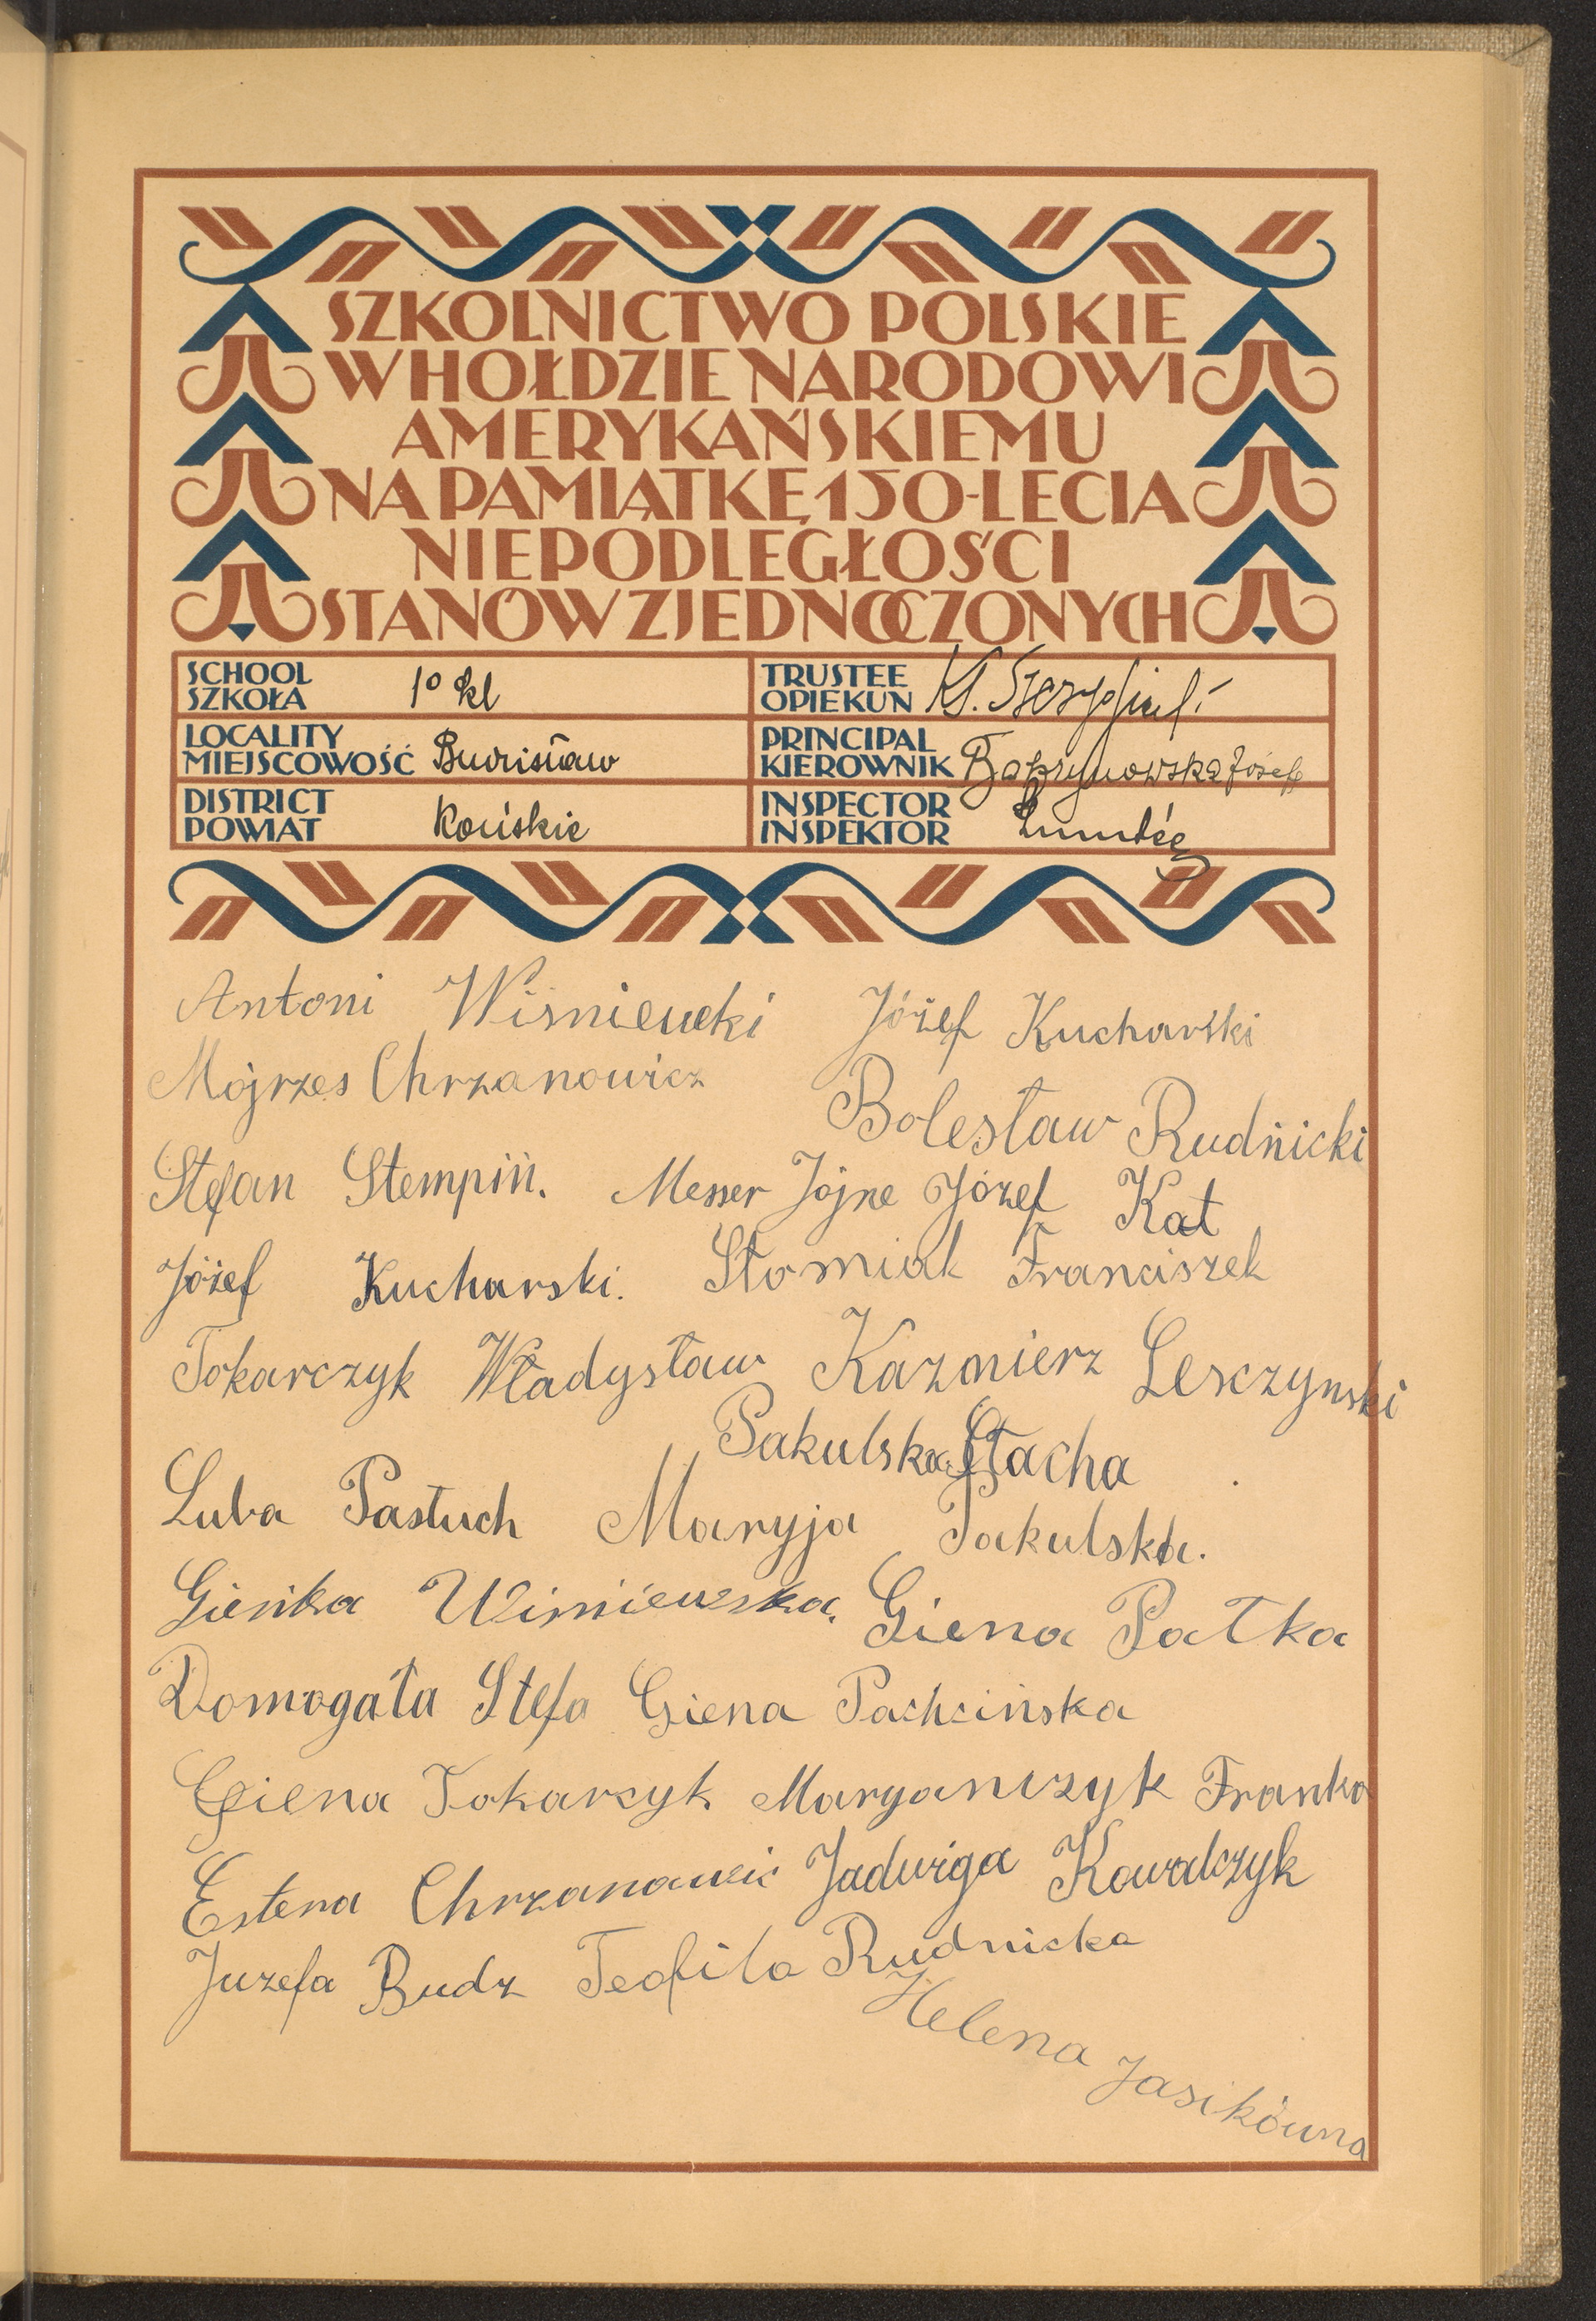 SZKOLNICTWO POLSKIE
W HOŁDZIE NARODOWI
AMERYKAŃSKIEMU
NA PAMIĄTKĘ 150-LECIA
NIEPODLEGŁOŚCI
STANÓW ZJEDNOCZONYCH
SCHOOL
SZKOŁA
1º kl
TRUSTEE
OPIEKUN
LOCALITY
MIEJSCOWOŚĆ
PRINCIPAL
KIEROWNIK
DISTRICT
POWIAT
Końskie
INSPECTOR
INSPEKTOR
Antoni Wiśniewski Józef Kucharski
Mojrzes Chrzanowicz
Bolesław Rudnicki
Stefan Stempiń. Messer Jojne Józef Kat
Józef Kucharski. Słomiak Franciszek
Tokarczyk Władysław Kazmierz Lesczynski
Pakulska Stacha
Luba Pastuch Maryja Pakulska.
Gieńka Wiśniewska. Giena Pałka
Domogała Stefa Giena Pachcińska
Giena Tokarsyk Maryanczyk Franka
Estera Chrzanowic Jadwiga Kowalczyk
Juzefa Budz Teofila Rudnicka
Helena Jasikówna